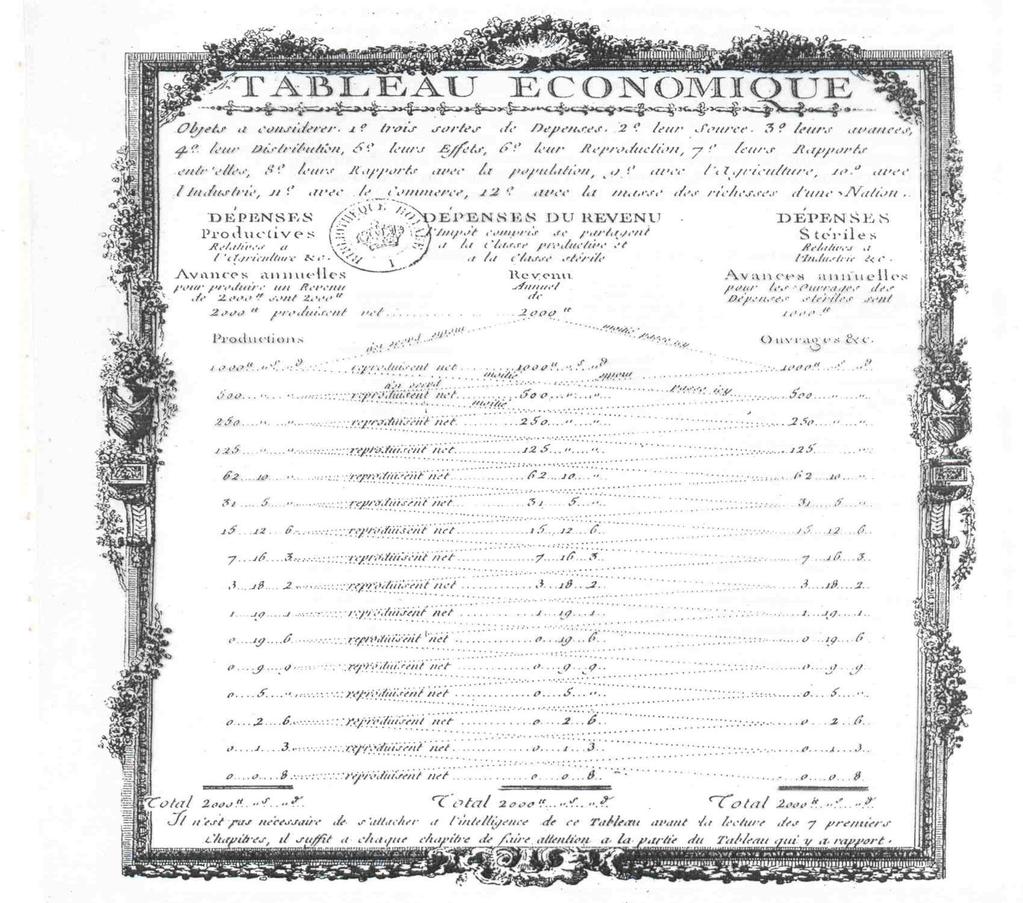 TABLEAU ECONOMIQUE
Objets a considerer. 1º trois sortes de Depenses. 2º leur Source. 3º leurs avances,
4º leur Distribution, 5º leurs Effets, 6º leur Reproduction, 7º leurs Rapports
entr'elles, 8º leurs Rapports avec la population, 9º avec l'Agriculture, 10º avec
l'Industrie, 11º avec le Commerce, 12º avec la masse des richesses d'une Nation.
DÉPENSES DÉPENSES DU REVENU DÉPENSES
Productives l'Impôt compris se partagent Stériles
Relatives a a la Classe productive et Relatives a
l'Agriculture &c. a la Classe stérile l'Industrie &c.
BIBLIOTHEQUE ROYALE
Avances annuelles Revenu Avances annuelles
pour produire un Revenu Annuel pour les Ouvrages des
de 2000 ₶ sont 2000 ₶ de Dépenses stériles sont
2000 ₶ produisent net 2000 ₶ 1000 ₶
moitié passe icy
Productions Ouvrages &c.
1000 ₶ „ s „ d reproduisent net 1000 ₶ „ s „ d 1000 ₶ „ s „ d
moitié passe icy
500 „ „ reproduisent net 500 „ „ 500 „ „
moitié
250 „ „ reproduisent net 250 „ „ 250 „ „
125 „ „ reproduisent net 125 „ „ 125 „ „
62 10 „ reproduisent net 62 10 „ 62 10 „
31 5 „ reproduisent net 31 5 „ 31 5 „
15 12 6 reproduisent net 15 12 6 15 12 6
7 16 3 reproduisent net 7 16 3 7 16 3
3 18 2 reproduisent net 3 18 2 3 18 2
1 19 1 reproduisent net 1 19 1 1 19 1
0 19 6 reproduisent net 0 19 6 0 19 6
0 9 9 reproduisent net 0 9 9 0 9 9
0 5 „ reproduisent net 0 5 „ 0 5 „
0 2 6 reproduisent net 0 2 6 0 2 6
0 1 3 reproduisent net 0 1 3 0 1 3
0 0 8 reproduisent net 0 0 8 0 0 8
Total 2000 ₶ „ s „ d Total 2000 ₶ „ s „ d Total 2000 ₶ „ s „ d
Il n'est pas nécessaire de s'attacher a l'intelligence de ce Tableau avant la lecture des 7 premiers
Chapitres, il suffit a chaque chapitre de faire attention a la partie du Tableau qui y a rapport.